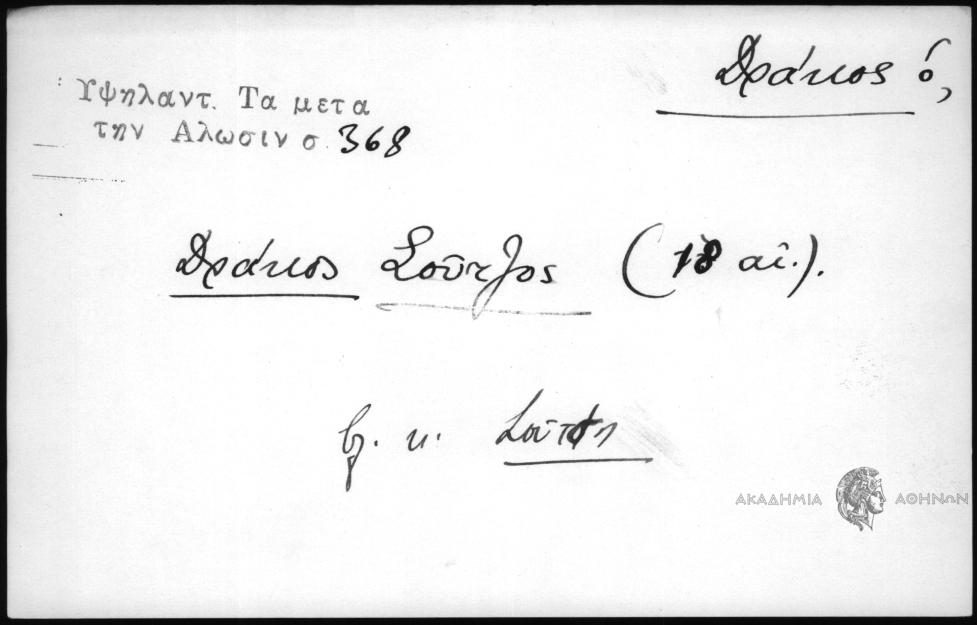 Δράκος ὁ,
Υψηλαντ. Τα μετα
την Αλωσιν σ. 368
Δράκος Σοῦτζος (18 αἰ.).
βλ. κ. Σοῦτσος
ΑΚΑΔΗΜΙΑ ΑΘΗΝΩΝ